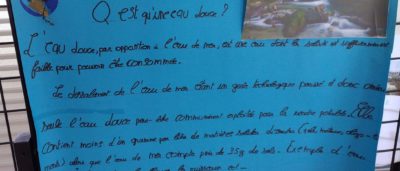 Qu'est qu'une eau douce ?
L'eau douce, par opposition à l'eau de mer, est une eau dont la salinité est suffisamment
faible pour pouvoir être consommée.
Le dessalement de l'eau de mer étant un geste technologique poussé et donc
seule l'eau douce peut-être communément exploitée pour la rendre potable. Elle
contient moins d'un gramme par litre de matières solides dissoutes (sels,
alors que l'eau de mer compte près de 35g de sels. Exemple d'eau